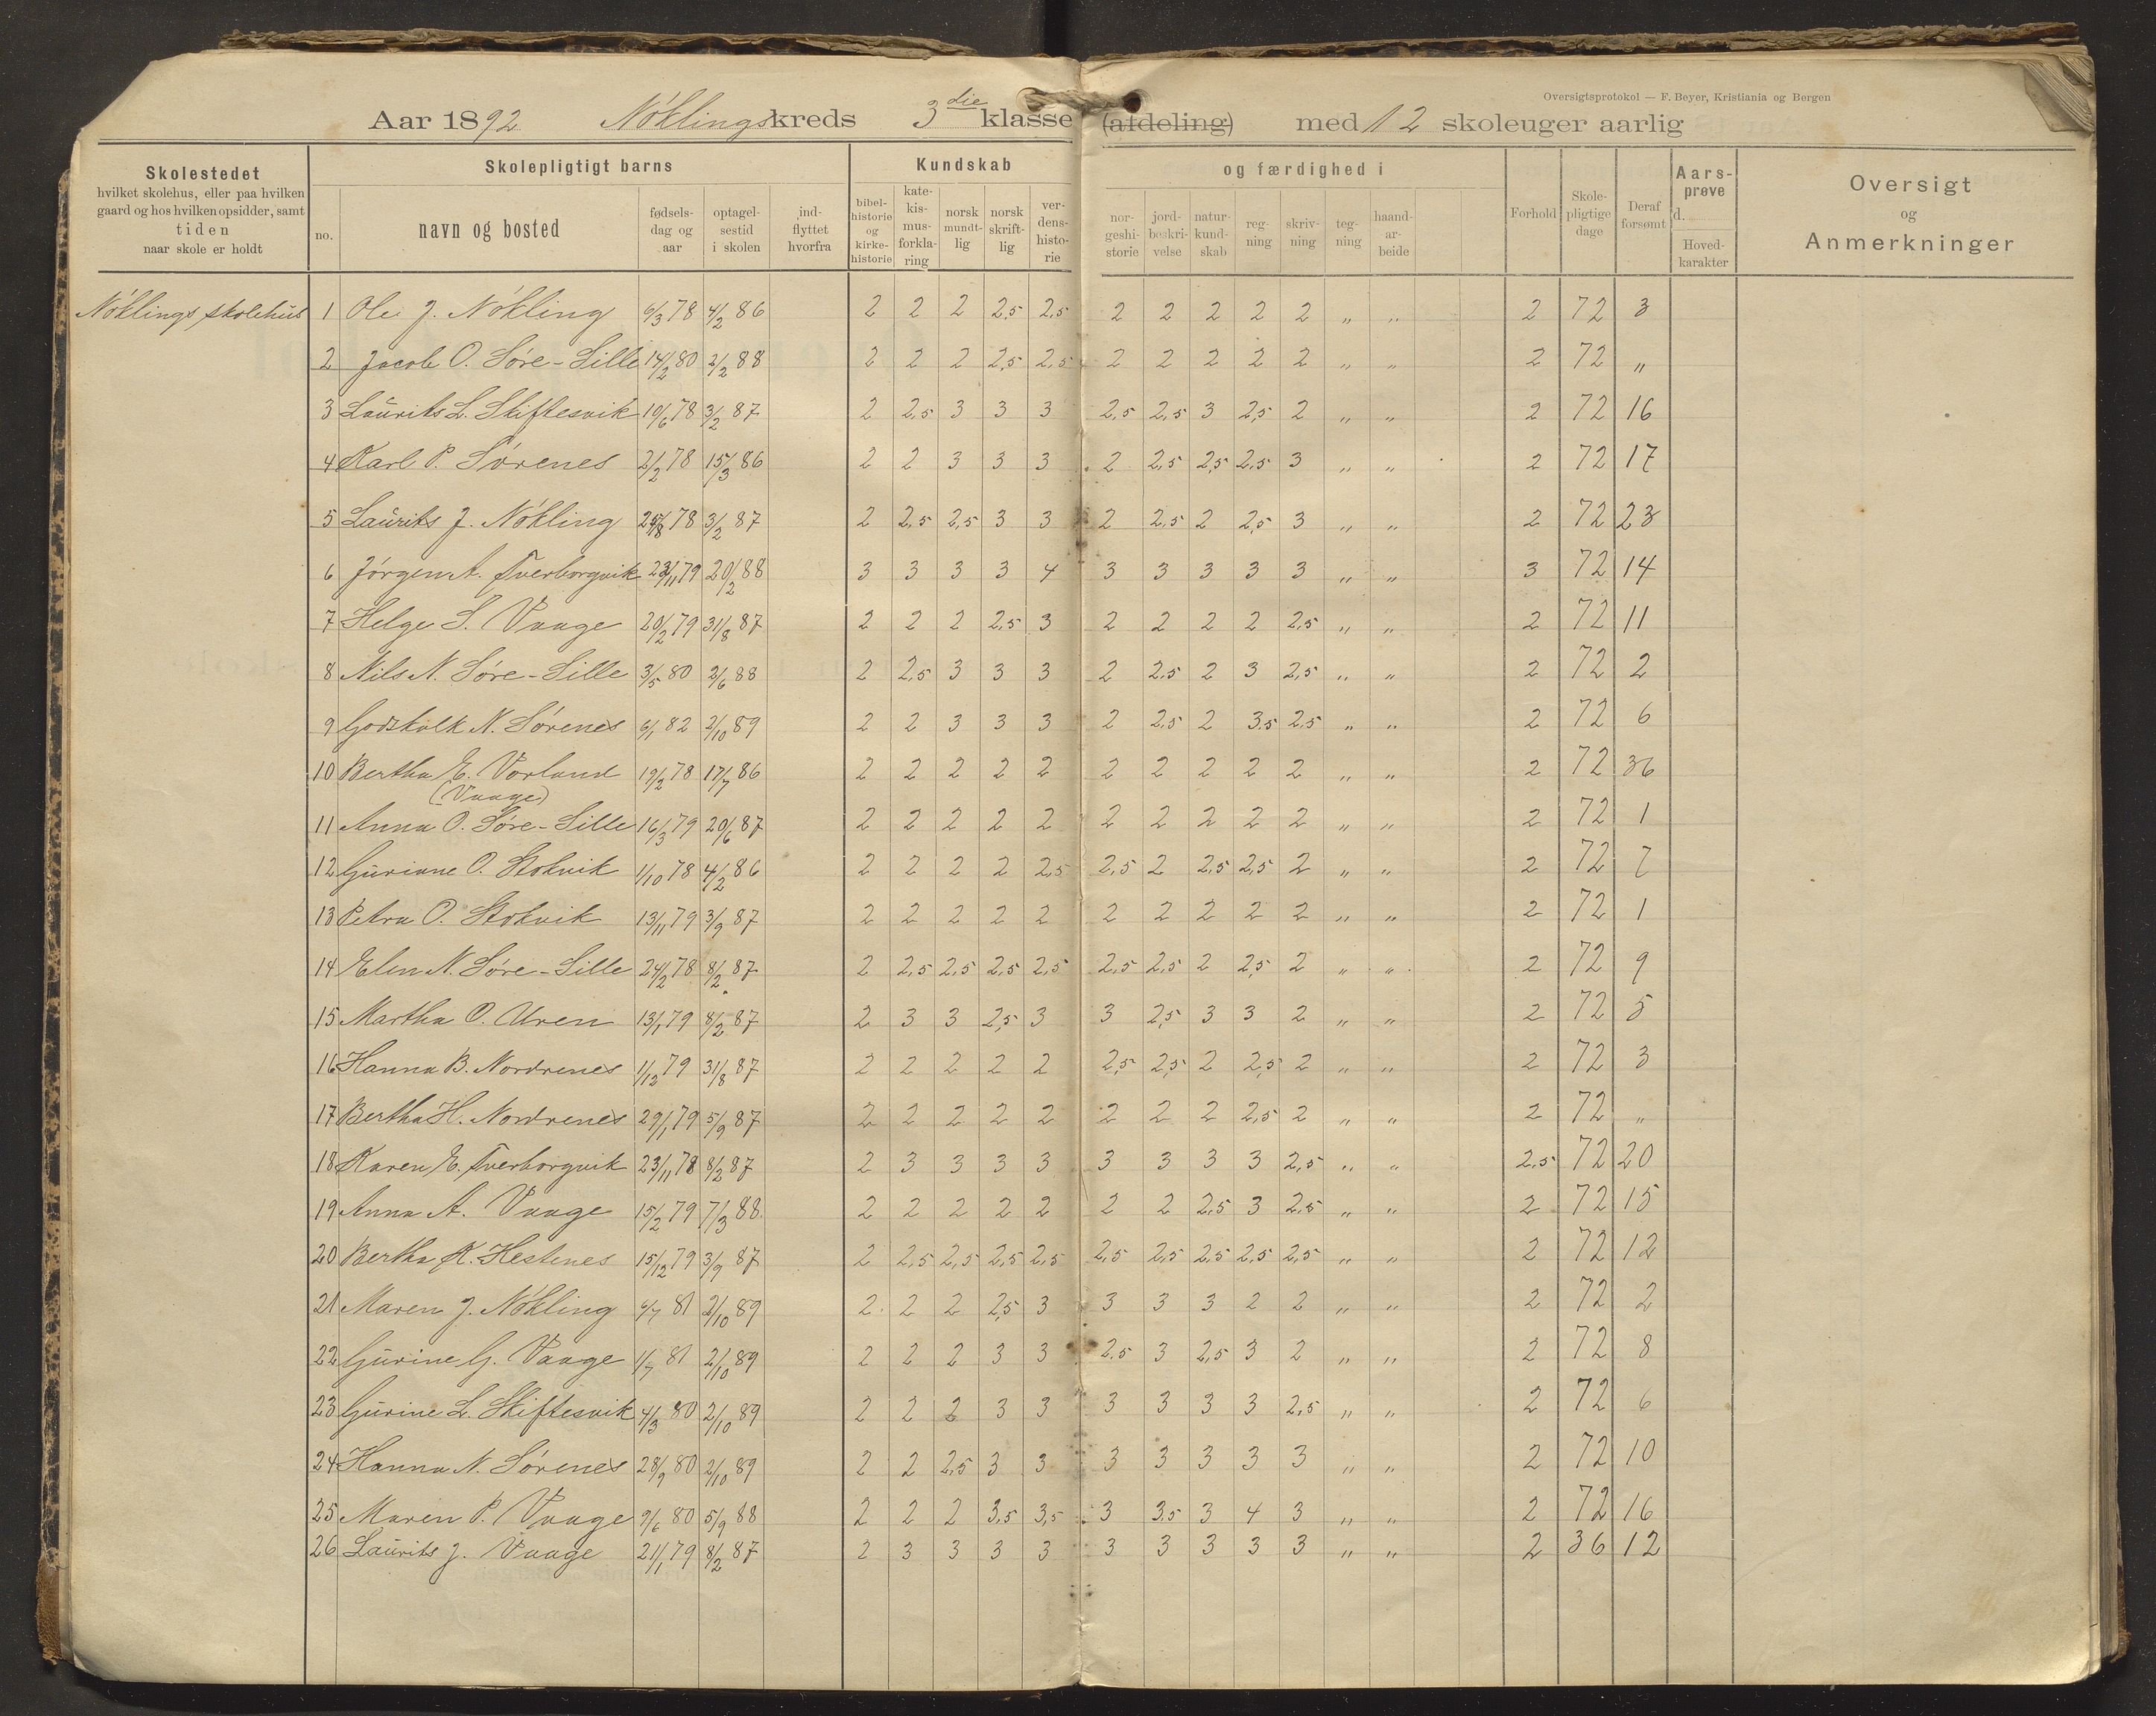 Oversigtsprotokol — F. Beyer, Kristiania og Bergen
Aar 1892 Nöklings kreds 3die klasse (afdeling) med 12 skoleuger aarlig
Skolestedet
hvilket skolehus, eller paa hvilken
gaard og hos hvilken opsidder, samt
tiden
naar skole er holdt
Skolepligtigt barns
no.
navn og bosted
fødsels-
dag og
aar
optagel-
sestid
i skolen
ind-
flyttet
hvorfra
Kundskab
bibel-
historie
og
kirke-
historie
kate-
kis-
mus-
forkla-
ring
norsk
mundt-
lig
norsk
skrift-
lig
ver-
dens-
histo-
rie
og færdighed i
nor-
geshi-
storie
jord-
beskri-
velse
natur-
kund-
skab
reg-
ning
skriv-
ning
teg-
ning
haand-
ar-
beide
Forhold
Skole-
pligtige
dage
Deraf
forsømt
Aars-
prøve
d.
Hoved-
karakter
Oversigt
og
Anmerkninger
Nöklings skolehus 1 Ole J. Nökling 6/3 78 4/2 86 2 2 2 2,5 2,5 2 2 2 2 2 „ „ 2 72 3
2 Jacob O. Söre-Lille 14/2 80 2/2 88 2 2 2 2,5 2,5 2 2 2 2 2 „ „ 2 72 „
3 Laurits L. Skiftesvik 10/6 78 3/2 87 2 2,5 3 3 3 2,5 2,5 3 2,5 2 „ „ 2 72 16
4 Karl P. Sörenes 2/2 78 15/3 86 2 2 3 3 3 2 2,5 2,5 2,5 3 „ „ 2 72 17
5 Laurits J. Nökling 25/8 78 3/2 87 2 2,5 2,5 3 3 2 2,5 2 2,5 3 „ „ 2 72 23
6 Jörgen A. Tverborgvik 23/11 79 20/2 88 3 3 3 3 4 3 3 3 3 3 „ „ 3 72 14
7 Helge S. Vaage 20/2 79 31/8 87 2 2 2 2,5 3 2 2 2 2 2,5 „ „ 2 72 11
8 Nils N. Söre-Lille 3/5 80 2/6 88 2 2,5 3 3 3 2 2,5 2 3 2,5 „ „ 2 72 2
9 Godskalk N. Sörenes 6/1 82 2/10 89 2 2 3 3 3 2 2,5 2 3,5 2,5 „ „ 2 72 6
10 Bertha E. Vorland 19/2 78 17/7 86 2 2 2 2 2 2 2 2 2 2 „ „ 2 72 36
(Vaage)
11 Anna O. Söre-Lille 16/3 79 20/6 87 2 2 2 2 2 2 2 2 2 2 „ „ 2 72 1
12 Guriane O. Stokvik 1/10 78 4/2 86 2 2 2 2 2,5 2,5 2 2,5 2,5 2 „ „ 2 72 7
13 Petra O. Stokvik 13/11 79 3/9 87 2 2 2 2 2 2 2 2 2 2 „ „ 2 72 1
14 Elen N. Söre-Lille 24/2 78 8/2 87 2 2,5 2,5 2,5 2,5 2,5 2,5 2 2,5 2 „ „ 2 72 9
15 Martha O. Uren 13/1 79 8/2 87 2 3 3 2,5 3 3 2,5 3 3 2 „ „ 2 72 5
16 Hanna B. Nordrenes 1/12 79 31/8 87 2 2 2 2 2 2,5 2,5 2 2,5 2 „ „ 2 72 3
17 Bertha H. Nordrenes 29/1 79 5/9 87 2 2 2 2 2 2 2 2 2,5 2 „ „ 2 72 „
18 Karen E. Tverborgvik 23/11 78 8/2 87 2 3 3 3 3 3 3 3 3 2,5 „ „ 2,5 72 20
19 Anna A. Vaage 15/2 79 7/3 88 2 2 2 2 2 2 2 2,5 3 2,5 „ „ 2 72 15
20 Bertha K. Hestenes 15/12 79 3/9 87 2 2,5 2,5 2,5 2,5 2,5 2,5 2,5 2,5 2,5 „ „ 2 72 12
21 Maren J. Nökling 4/7 81 2/10 89 2 2 2 2,5 3 3 3 3 2 2 „ „ 2 72 2
22 Gurine G. Vaage 1/7 81 2/10 89 2 2 2 3 3 2,5 3 2,5 3 2 „ „ 2 72 8
23 Gurine L. Skiftesvik 4/3 80 2/10 89 2 2 2 3 3 3 3 3 3 2,5 „ „ 2 72 6
24 Hanna N. Sörenes 28/9 80 2/10 89 2 2 2,5 3 3 3 3 3 3 3 „ „ 2 72 10
25 Maren P. Vaage 9/6 80 5/9 88 2 2 2 3,5 3,5 3 3,5 3 4 3 „ „ 2 72 16
26 Laurits J. Vaage 21/1 79 8/2 87 2 3 3 3 3 3 3 3 3 3 „ „ 2 36 12